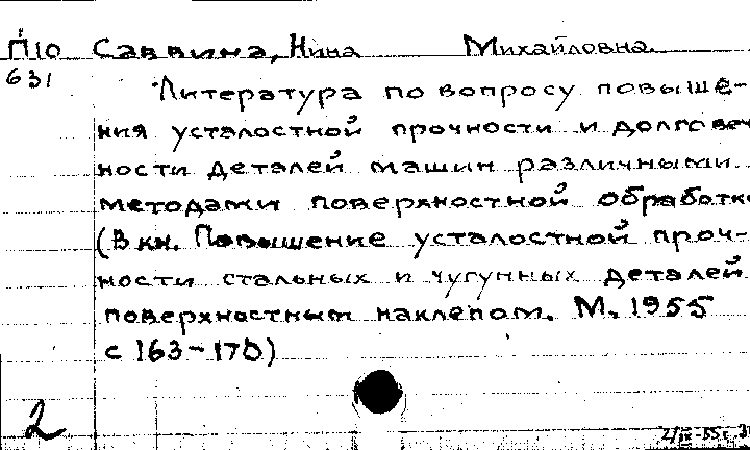 П10 Саввина, Нина Михайловна
631
Литература по вопросу повыше-
ния усталостной прочности и долговеч
ности деталей машин различными
методами поверхностной обработк
(В кн. Повышение усталостной проч-
ности стальных и чугунных деталей
поверхностным наклепом. М. 1955
с 163-170)
2